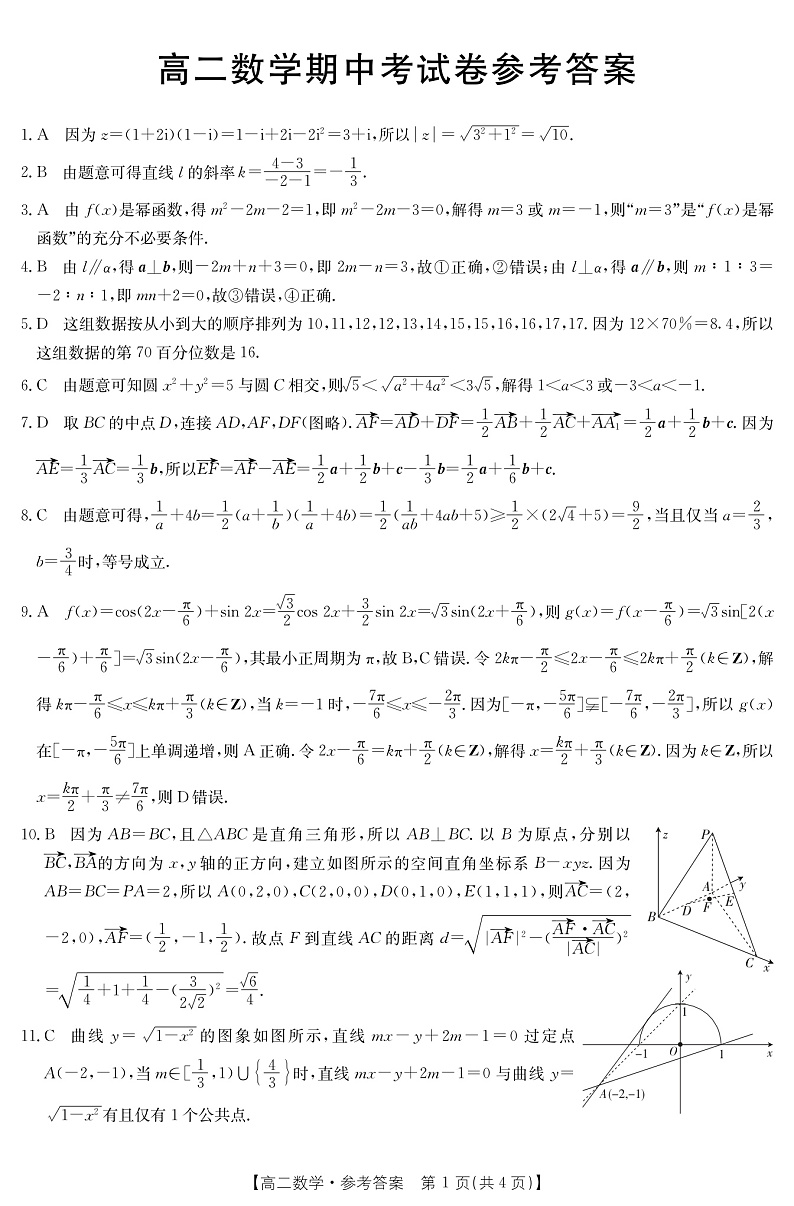 高二数学期中考试卷参考答案
1. A　因为 z=(1+2i)(1-i)=1-i+2i-2i²=3+i,所以|z|=√(3²+1²)=√10.
2. B　由题意可得直线 l 的斜率 k=(4-3)/(-2-1)=-1/3.
3. A　由 f(x)是幂函数,得 m²-2m-2=1,即 m²-2m-3=0,解得 m=3 或 m=-1,则“m=3”是“f(x)是幂
函数”的充分不必要条件.
4. B　由 l∥α,得 a⊥b,则-2m+n+3=0,即 2m-n=3,故①正确,②错误;由 l⊥α,得 a∥b,则 m∶1∶3=
-2∶n∶1,即 mn+2=0,故③错误,④正确.
5. D　这组数据按从小到大的顺序排列为 10,11,12,12,13,14,15,15,16,16,17,17.因为 12×70%=8.4,所以
这组数据的第 70 百分位数是 16.
6. C　由题意可知圆 x²+y²=5 与圆 C 相交,则√5<√(a²+4a²)<3√5,解得 1<a<3 或-3<a<-1.
7. D　取 BC 的中点 D,连接 AD,AF,DF(图略).AF→=AD→+DF→=1/2 AB→+1/2 AC→+AA₁→=1/2 a+1/2 b+c.因为
AE→=1/3 AC→=1/3 b,所以EF→=AF→-AE→=1/2 a+1/2 b+c-1/3 b=1/2 a+1/6 b+c.
8. C　由题意可得,1/a+4b=1/2(a+1/b)(1/a+4b)=1/2(1/ab+4ab+5)≥1/2×(2√4+5)=9/2,当且仅当 a=2/3,
b=3/4时,等号成立.
9. A　f(x)=cos(2x-π/6)+sin 2x=√3/2 cos 2x+3/2 sin 2x=√3sin(2x+π/6),则 g(x)=f(x-π/6)=√3sin[2(x
-π/6)+π/6]=√3sin(2x-π/6),其最小正周期为 π,故 B,C 错误.令 2kπ-π/2≤2x-π/6≤2kπ+π/2(k∈Z),解
得 kπ-π/6≤x≤kπ+π/3(k∈Z),当 k=-1 时,-7π/6≤x≤-2π/3.因为[-π,-5π/6]⫋[-7π/6,-2π/3],所以 g(x)
在[-π,-5π/6]上单调递增,则 A 正确.令 2x-π/6=kπ+π/2(k∈Z),解得 x=kπ/2+π/3(k∈Z).因为 k∈Z,所以
x=kπ/2+π/3≠7π/6,则 D 错误.
10. B　因为 AB=BC,且△ABC 是直角三角形,所以 AB⊥BC.以 B 为原点,分别以
BC→,BA→的方向为 x,y 轴的正方向,建立如图所示的空间直角坐标系 B-xyz.因为
AB=BC=PA=2,所以 A(0,2,0),C(2,0,0),D(0,1,0),E(1,1,1),则AC→=(2,
-2,0),AF→=(1/2,-1,1/2).故点 F 到直线 AC 的距离 d=√(|AF→|²-(AF→·AC→/|AC→|)²)
=√(1/4+1+1/4-(3/(2√2))²)=√6/4.
z
P
A
y
D
F
E
B
C
x
11. C　曲线 y=√(1-x²)的图象如图所示,直线 mx-y+2m-1=0 过定点
A(-2,-1),当 m∈[1/3,1)∪{4/3}时,直线 mx-y+2m-1=0 与曲线 y=
√(1-x²)有且仅有 1 个公共点.
y
1
-1
O
1
x
A(-2,-1)
【高二数学·参考答案　第 1 页(共 4 页)】